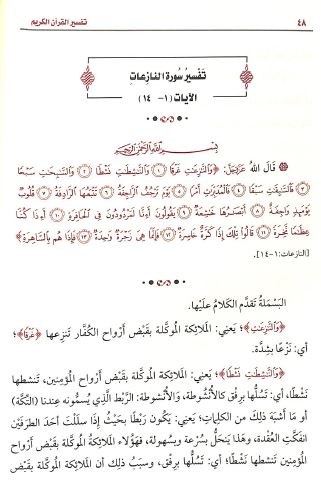 ٤٨ تفسير القرآن الكريم
تَفْسِيرُ سُورَةِ النازعاتِ
الآيات (١- ١٤)
بِسْمِ اللَّهِ الرَّحْمَنِ الرَّحِيمِ
قَالَ اللهُ عَزَّوَجَلَّ: ﴿وَالنَّازِعَاتِ غَرْقًا ۝١ وَالنَّاشِطَاتِ نَشْطًا ۝٢ وَالسَّابِحَاتِ سَبْحًا
۝٣ فَالسَّابِقَاتِ سَبْقًا ۝٤ فَالْمُدَبِّرَاتِ أَمْرًا ۝٥ يَوْمَ تَرْجُفُ الرَّاجِفَةُ ۝٦ تَتْبَعُهَا الرَّادِفَةُ ۝٧ قُلُوبٌ
يَوْمَئِذٍ وَاجِفَةٌ ۝٨ أَبْصَارُهَا خَاشِعَةٌ ۝٩ يَقُولُونَ أَءِنَّا لَمَرْدُودُونَ فِي الْحَافِرَةِ ۝١٠ أَءِذَا كُنَّا
عِظَامًا نَّخِرَةً ۝١١ قَالُوا تِلْكَ إِذًا كَرَّةٌ خَاسِرَةٌ ۝١٢ فَإِنَّمَا هِيَ زَجْرَةٌ وَاحِدَةٌ ۝١٣ فَإِذَا هُم بِالسَّاهِرَةِ﴾
[النازعات:١-١٤].
البَسْمَلةُ تَقدَّم الكَلامُ عَلَيْها.
﴿وَالنَّازِعَاتِ﴾؛ يَعنِي: الملائكة الموكَّلة بقَبْض أرواح الكُفَّار تَنزِعها ﴿غَرْقًا﴾؛
أي: نَزْعًا بشِدَّة.
﴿وَالنَّاشِطَاتِ نَشْطًا﴾؛ يَعنِي: الملائكة الموكَّلة بقَبْض أرواح المُؤمِنين، تَنشِطها
نَشْطًا، أي: تَسُلُّها برِفق كالأُنْشوطة، والأُنْشوطة: الرَّبْط الَّذي يُسمُّونه عِندنا (التكَّة)
أو ما أشبَهَ ذلك من الكلِمات؛ يَعنِي: يَكون رَبْطًا بحَيْثُ إذا سَلَلْتَ أحَد الطرَفَيْن
انفَكَّتِ العُقْدة، وهذا يَنحَلُّ بسُرعة وبسُهولة، فهَؤلاءِ الملائكةُ الموكَّلة بقَبْض أرواح
المُؤمِنين تَنشِطها نَشْطًا؛ أي: تَسُلُّها برِفق، وسبَبُ ذلك أن الملائكة الموكَّلة بقَبْض